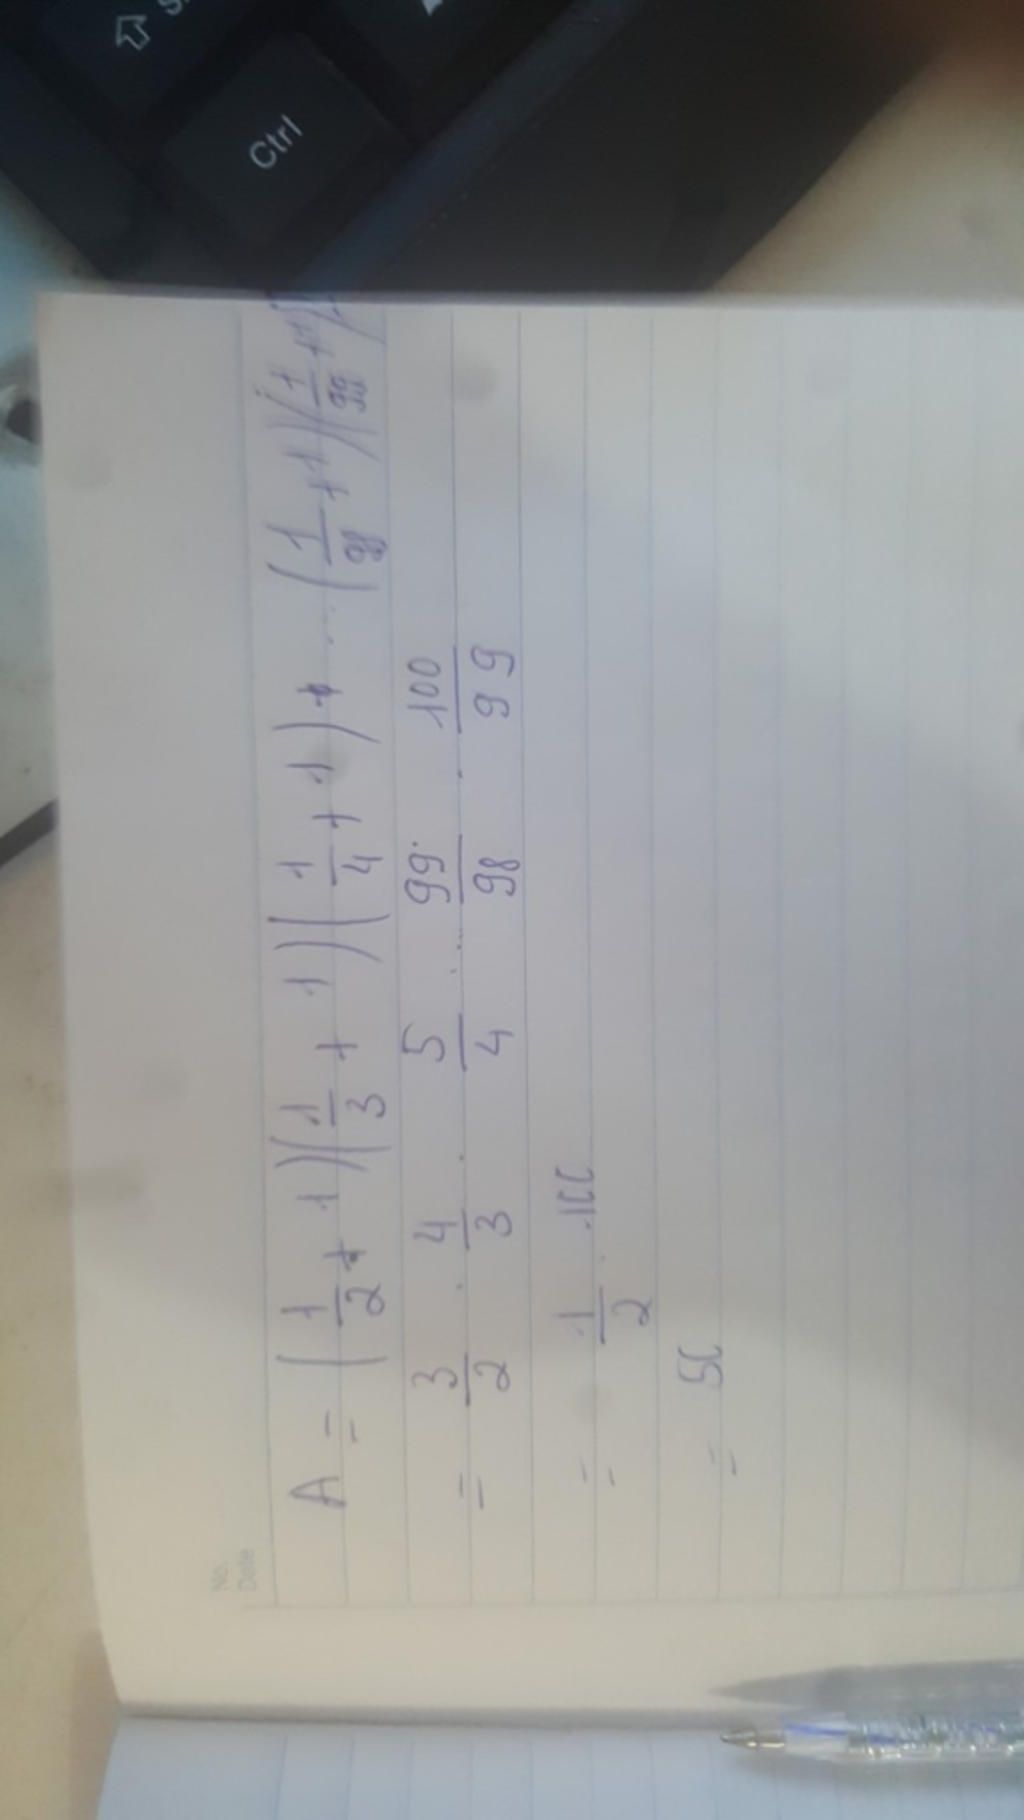 Ctrl
No.
Date
A = (1/2 + 1)(1/3 + 1)(1/4 + 1) + ... (1/98 + 1)(1/99 + 1)
= 3/2 . 4/3 . 5/4 .... 99/98 . 100/99
= 1/2 . 100
= 50